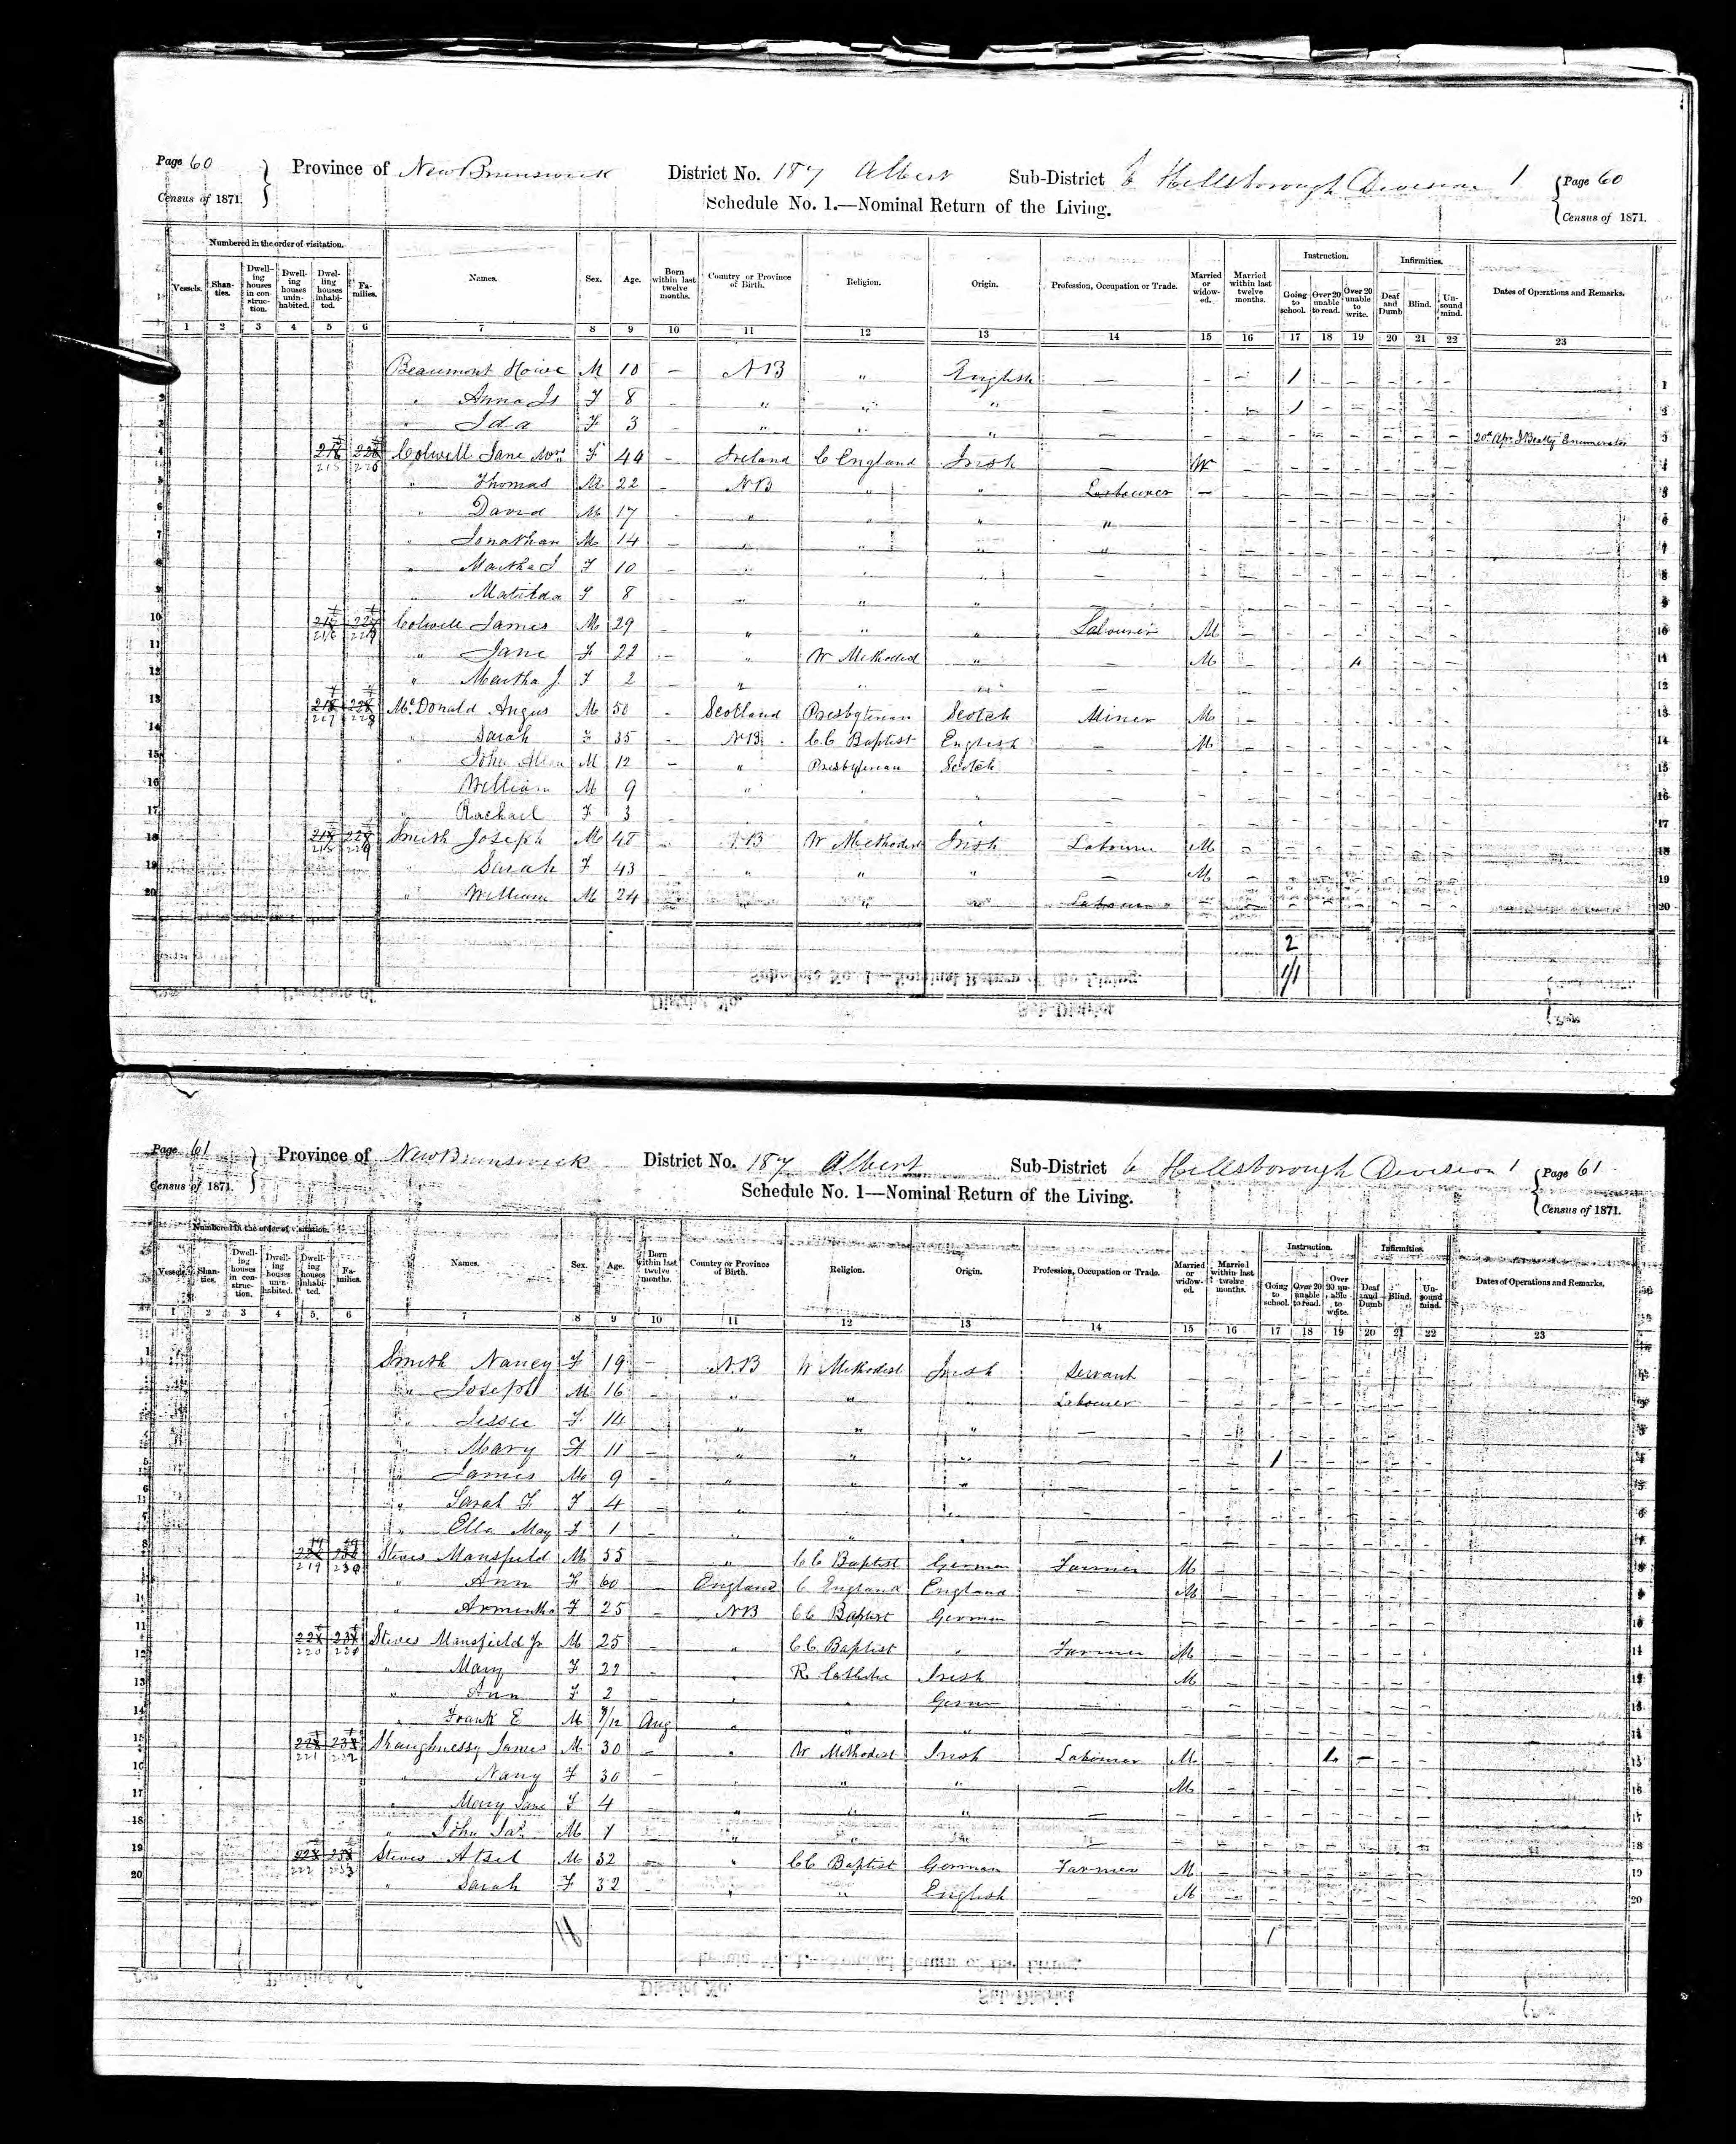 Page 60 Province of New Brunswick District No. 187 Albert Sub-District b Hillsborough Division 1 Page 60
Census of 1871. Schedule No. 1.—Nominal Return of the Living. Census of 1871.
Numbered in the order of visitation. Instruction. Infirmities.
Vessels. Shanties. Dwelling houses in construction. Dwelling houses uninhabited. Dwelling houses inhabited. Families. Names. Sex. Age. Born within last twelve months. Country or Province of Birth. Religion. Origin. Profession, Occupation or Trade. Married or widowed. Married within last twelve months. Going to school. Over 20 unable to read. Over 20 unable to write. Deaf and Dumb Blind. Unsound mind. Dates of Operations and Remarks.
1 2 3 4 5 6 7 8 9 10 11 12 13 14 15 16 17 18 19 20 21 22 23
Beaumont Howe M 10 — NB " English — - - 1 - - - - - 1
2 " Anna F 8 - " " " — - - 1 - - - - - 2
3 " Ida F 3 - " " " — - - - - - - - - 20th Apr J Beatty Enumerator 3
4 215 226 Colwell Jane Mrs F 44 - Ireland C England Irish — W - - - - - - - 4
5 " Thomas M 22 - NB " " Labourer - - - - - - - - 5
6 " David M 17 - " " " " - - - - - - - - 6
7 " Jonathan M 14 - " " " " - - - - - - - - 7
8 " Martha J F 10 - " " " — - - - - - - - - 8
9 " Matilda F 8 - " " " — - - - - - - - - 9
10 216 227 Colwell James M 29 - " " " Labourer M - - - - - - - 10
11 " Jane F 22 - " W Methodist " — M - - - 1 - - - 11
12 " Martha J. F 2 - " " " — - - - - - - - - 12
13 217 228 McDonald Angus M 50 - Scotland Presbyterian Scotch Miner M - - - - - - - 13
14 " Sarah F 35 - NB C C Baptist English — M - - - - - - - 14
15 " John Allen M 12 - " Presbyterian Scotch — - - - - - - - - 15
16 " William M 9 - " " " — - - - - - - - - 16
17 " Rachael F 3 - " " " — - - - - - - - - 17
18 218 229 Smith Joseph M 48 - NB W Methodist Irish Labourer M - - - - - - - 18
19 " Sarah F 43 - " " " — M - - - - - - - 19
20 " William M 24 - " " " Labourer - - - - - - - - 20
2
1/1
Page 61 Province of New Brunswick District No. 187 Albert Sub-District b Hillsborough Division 1 Page 61
Census of 1871. Schedule No. 1—Nominal Return of the Living. Census of 1871.
Numbered in the order of visitation. Instruction. Infirmities.
Vessels. Shanties. Dwelling houses in construction. Dwelling houses uninhabited. Dwelling houses inhabited. Families. Names. Sex. Age. Born within last twelve months. Country or Province of Birth. Religion. Origin. Profession, Occupation or Trade. Married or widowed. Married within last twelve months. Going to school. Over 20 unable to read. Over 20 unable to write. Deaf and Dumb Blind. Unsound mind. Dates of Operations and Remarks.
1 2 3 4 5 6 7 8 9 10 11 12 13 14 15 16 17 18 19 20 21 22 23
1 Smith Nancy F 19 - NB W Methodist Irish Servant - - - - - - - -
" Joseph M 16 - " " " Labourer - - - - - - - -
" Jessie F 14 - " " " — - - - - - - - -
" Mary F 11 - " " " — - - 1 - - - - -
" James M 9 - " " " - - - - - - - -
" Sarah F. F 4 - " " " - - - - - - - -
" Ella May F 1 - " " " - - - - - - - -
219 230 Steves Mansfield M 55 - " C C Baptist German Farmer M - - - - - - -
" Ann F 60 - England C England England — M - - - - - - -
" Armintha F 25 - NB C C Baptist German — - - - - - - - - 10
11 220 231 Steves Mansfield Jr M 25 - " C C Baptist " Farmer M - - - - - - - 11
12 " Mary F 22 - " R Catholic Irish — M - - - - - - - 12
13 " Ann F 2 - " " German — - - - - - - - - 13
14 " Frank E M 8/12 Aug " " " — - - - - - - - - 14
15 221 232 Shaughnessy James M 30 - " W Methodist Irish Labourer M - - 1 - - - - 15
16 " Nancy F 30 - " " " — M - - - - - - - 16
17 " Mary Jane F 4 - " " " — - - - - - - - - 17
18 " John Jas. M 1 - " " " — - - - - - - - - 18
19 222 233 Steves Atsel M 32 - " C C Baptist German Farmer M - - - - - - - 19
20 " Sarah F 32 - " " English — M - - - - - - - 20
1